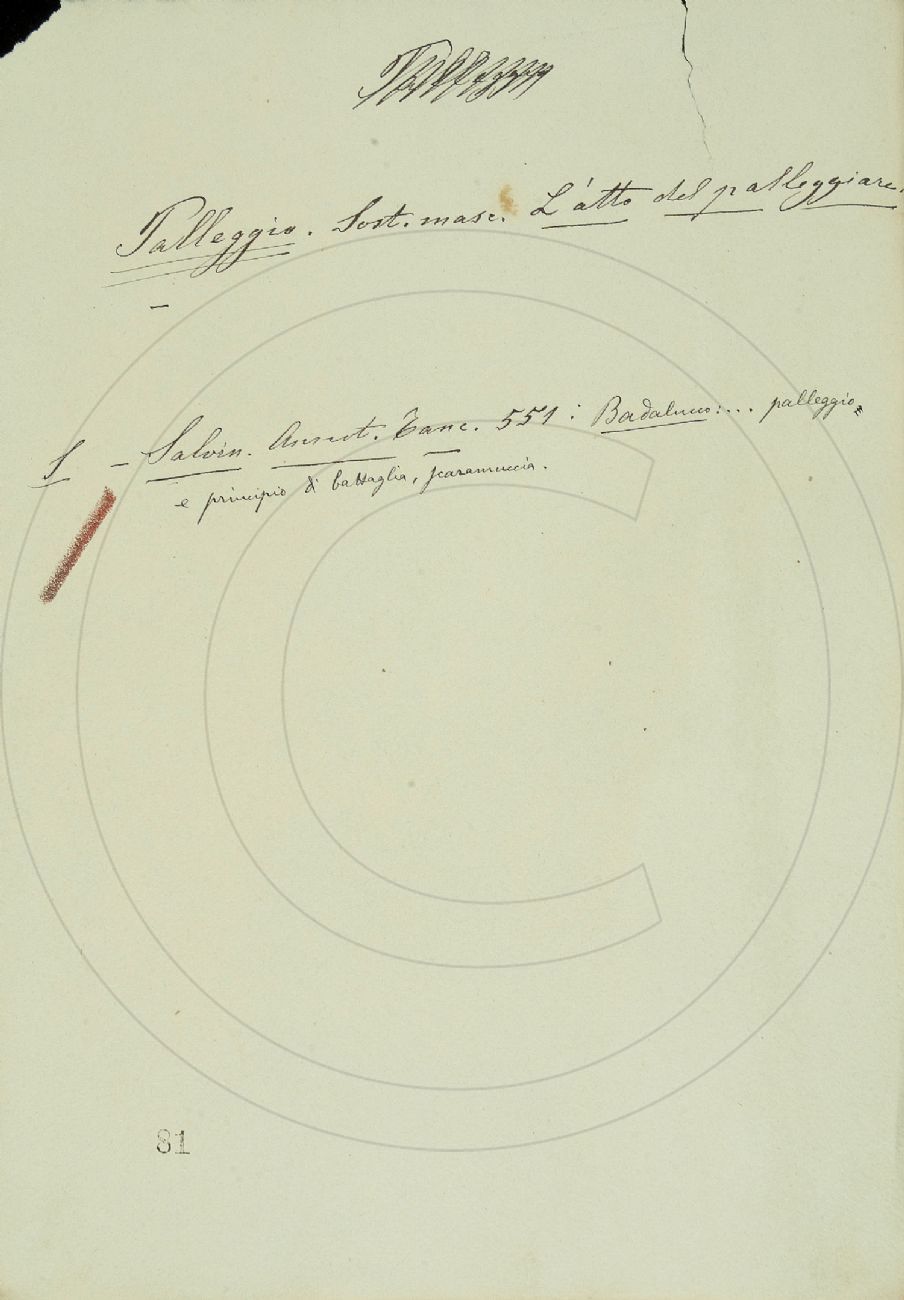 Palleggio. Sost. masc. L'atto del palleggiare.
–
S – Salvin. Annot. Tanc. 551: Badalucco: ... palleggio,
e principio di battaglia, scaramuccia.
81